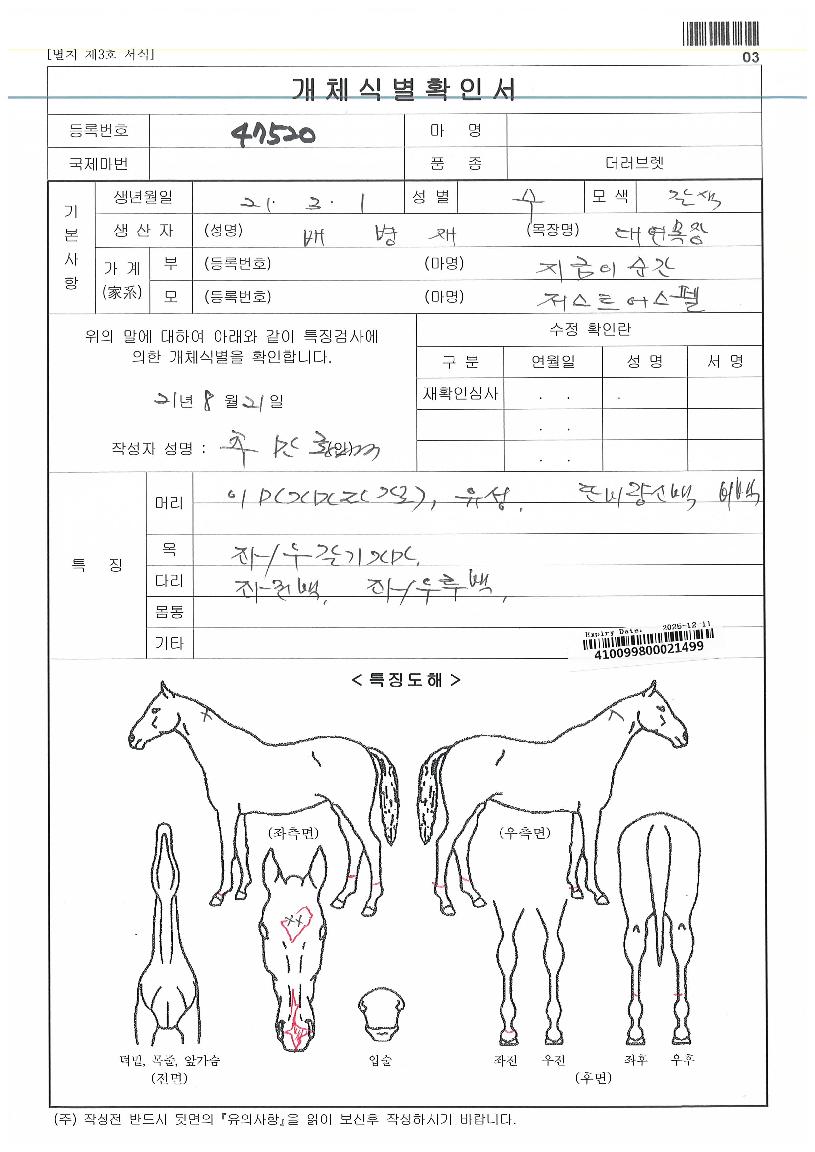 [별지 제3호 서식]
03
개체식별확인서
등록번호 47520 마 명
국제마번 품 종 더러브렛
기본사항
생년월일 21. 3. 1 성 별 수 모 색 갈색
생 산 자 (성명) 배 병 재 (목장명) 대연목장
가 계 (家系) 부 (등록번호) (마명) 지금이순간
모 (등록번호) (마명) 저스트어스펠
위의 말에 대하여 아래와 같이 특징검사에
의한 개체식별을 확인합니다.
21년 8 월 21 일
작성자 성명 :
수정 확인란
구 분 연월일 성 명 서 명
재확인심사 . . .
. .
. .
특 징
머리 유성,
목 좌/우
다리 좌전백, 좌/우후백,
몸통
기타
Expiry Date: 2025-12-11
410099800021499
< 특징도해 >
(좌측면) (우측면)
턱밑, 목줄, 앞가슴
(전면)
입술
좌전 우전 좌후 우후
(후면)
(주) 작성전 반드시 뒷면의 『유의사항』을 읽어 보신후 작성하시기 바랍니다.